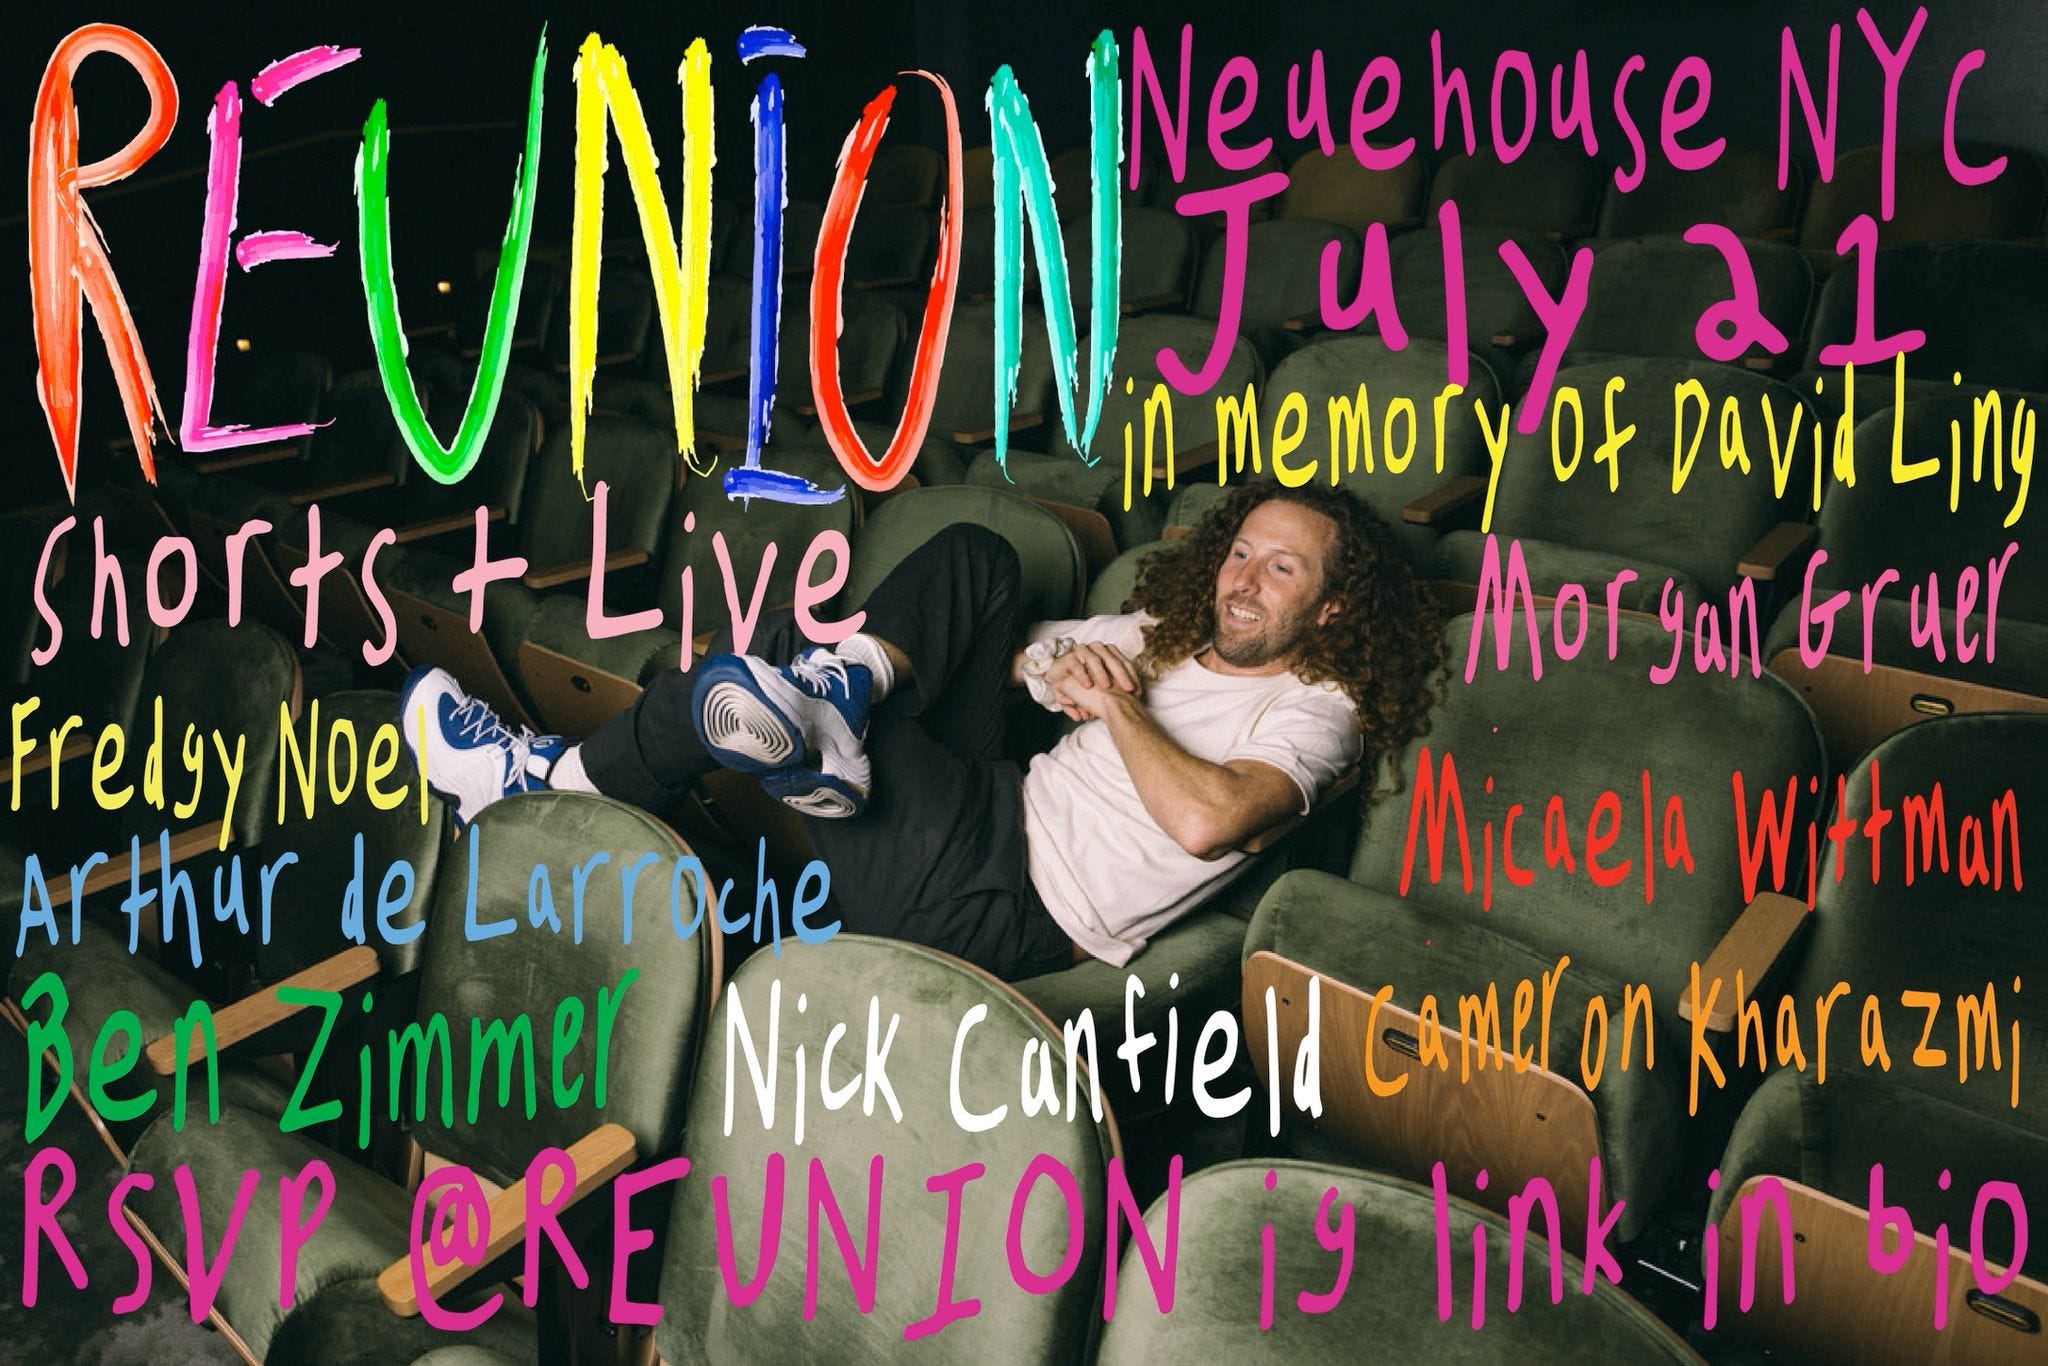 REUNION
Neuehouse NYC
July 21
in memory of David Ling
Shorts + Live
Morgan Gruer
Fredgy Noel
Micaela Wittman
Arthur de Larroche
Ben Zimmer
Nick Canfield
Cameron Kharazmi
RSVP @REUNION ig link in bio